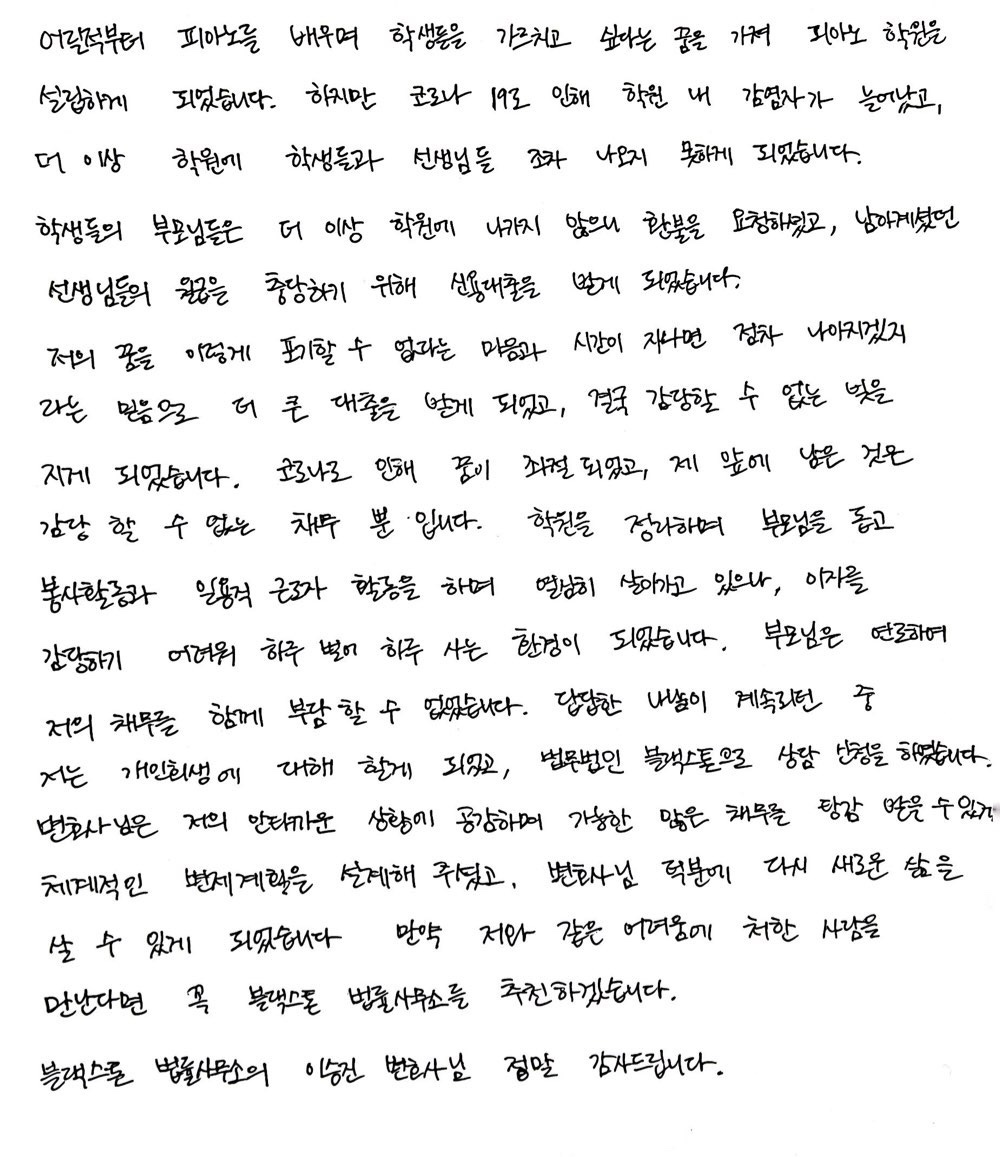 어릴적부터 피아노를 배우며 학생들을 가르치고 싶다는 꿈을 가져 피아노 학원을
설립하게 되었습니다. 하지만 코로나 19로 인해 학원 내 감염자가 늘어났고,
더 이상 학원에 학생들과 선생님들 조차 나오지 못하게 되었습니다.
학생들의 부모님들은 더 이상 학원에 나가지 않으니 환불을 요청하셨고, 남아계셨던
선생님들의 월급을 충당하기 위해 신용대출을 받게 되었습니다.
저의 꿈을 이렇게 포기할 수 없다는 마음과 시간이 지나면 점차 나아지겠지
라는 믿음으로 더 큰 대출을 받게 되었고, 결국 감당할 수 없는 빚을
지게 되었습니다. 코로나로 인해 꿈이 좌절되었고, 제 앞에 남은 것은
감당 할 수 없는 채무 뿐 입니다. 학원을 정리하며 부모님을 돕고
봉사활동과 일용직 근로자 활동을 하며 열심히 살아가고 있으나, 이자를
감당하기 어려워 하루 벌어 하루 사는 환경이 되었습니다. 부모님은 연로하여
저의 채무를 함께 부담 할 수 없었습니다. 답답한 나날이 계속되던 중
저는 개인회생에 대해 알게 되었고, 법무법인 블랙스톤으로 상담 신청을 하였습니다.
변호사님은 저의 안타까운 상황에 공감하며 가능한 많은 채무를 탕감 받을 수 있게
체계적인 변제계획을 설계해 주셨고, 변호사님 덕분에 다시 새로운 삶을
살 수 있게 되었습니다 만약 저와 같은 어려움에 처한 사람을
만난다면 꼭 블랙스톤 법률사무소를 추천하겠습니다.
블랙스톤 법률사무소의 이승진 변호사님 정말 감사드립니다.